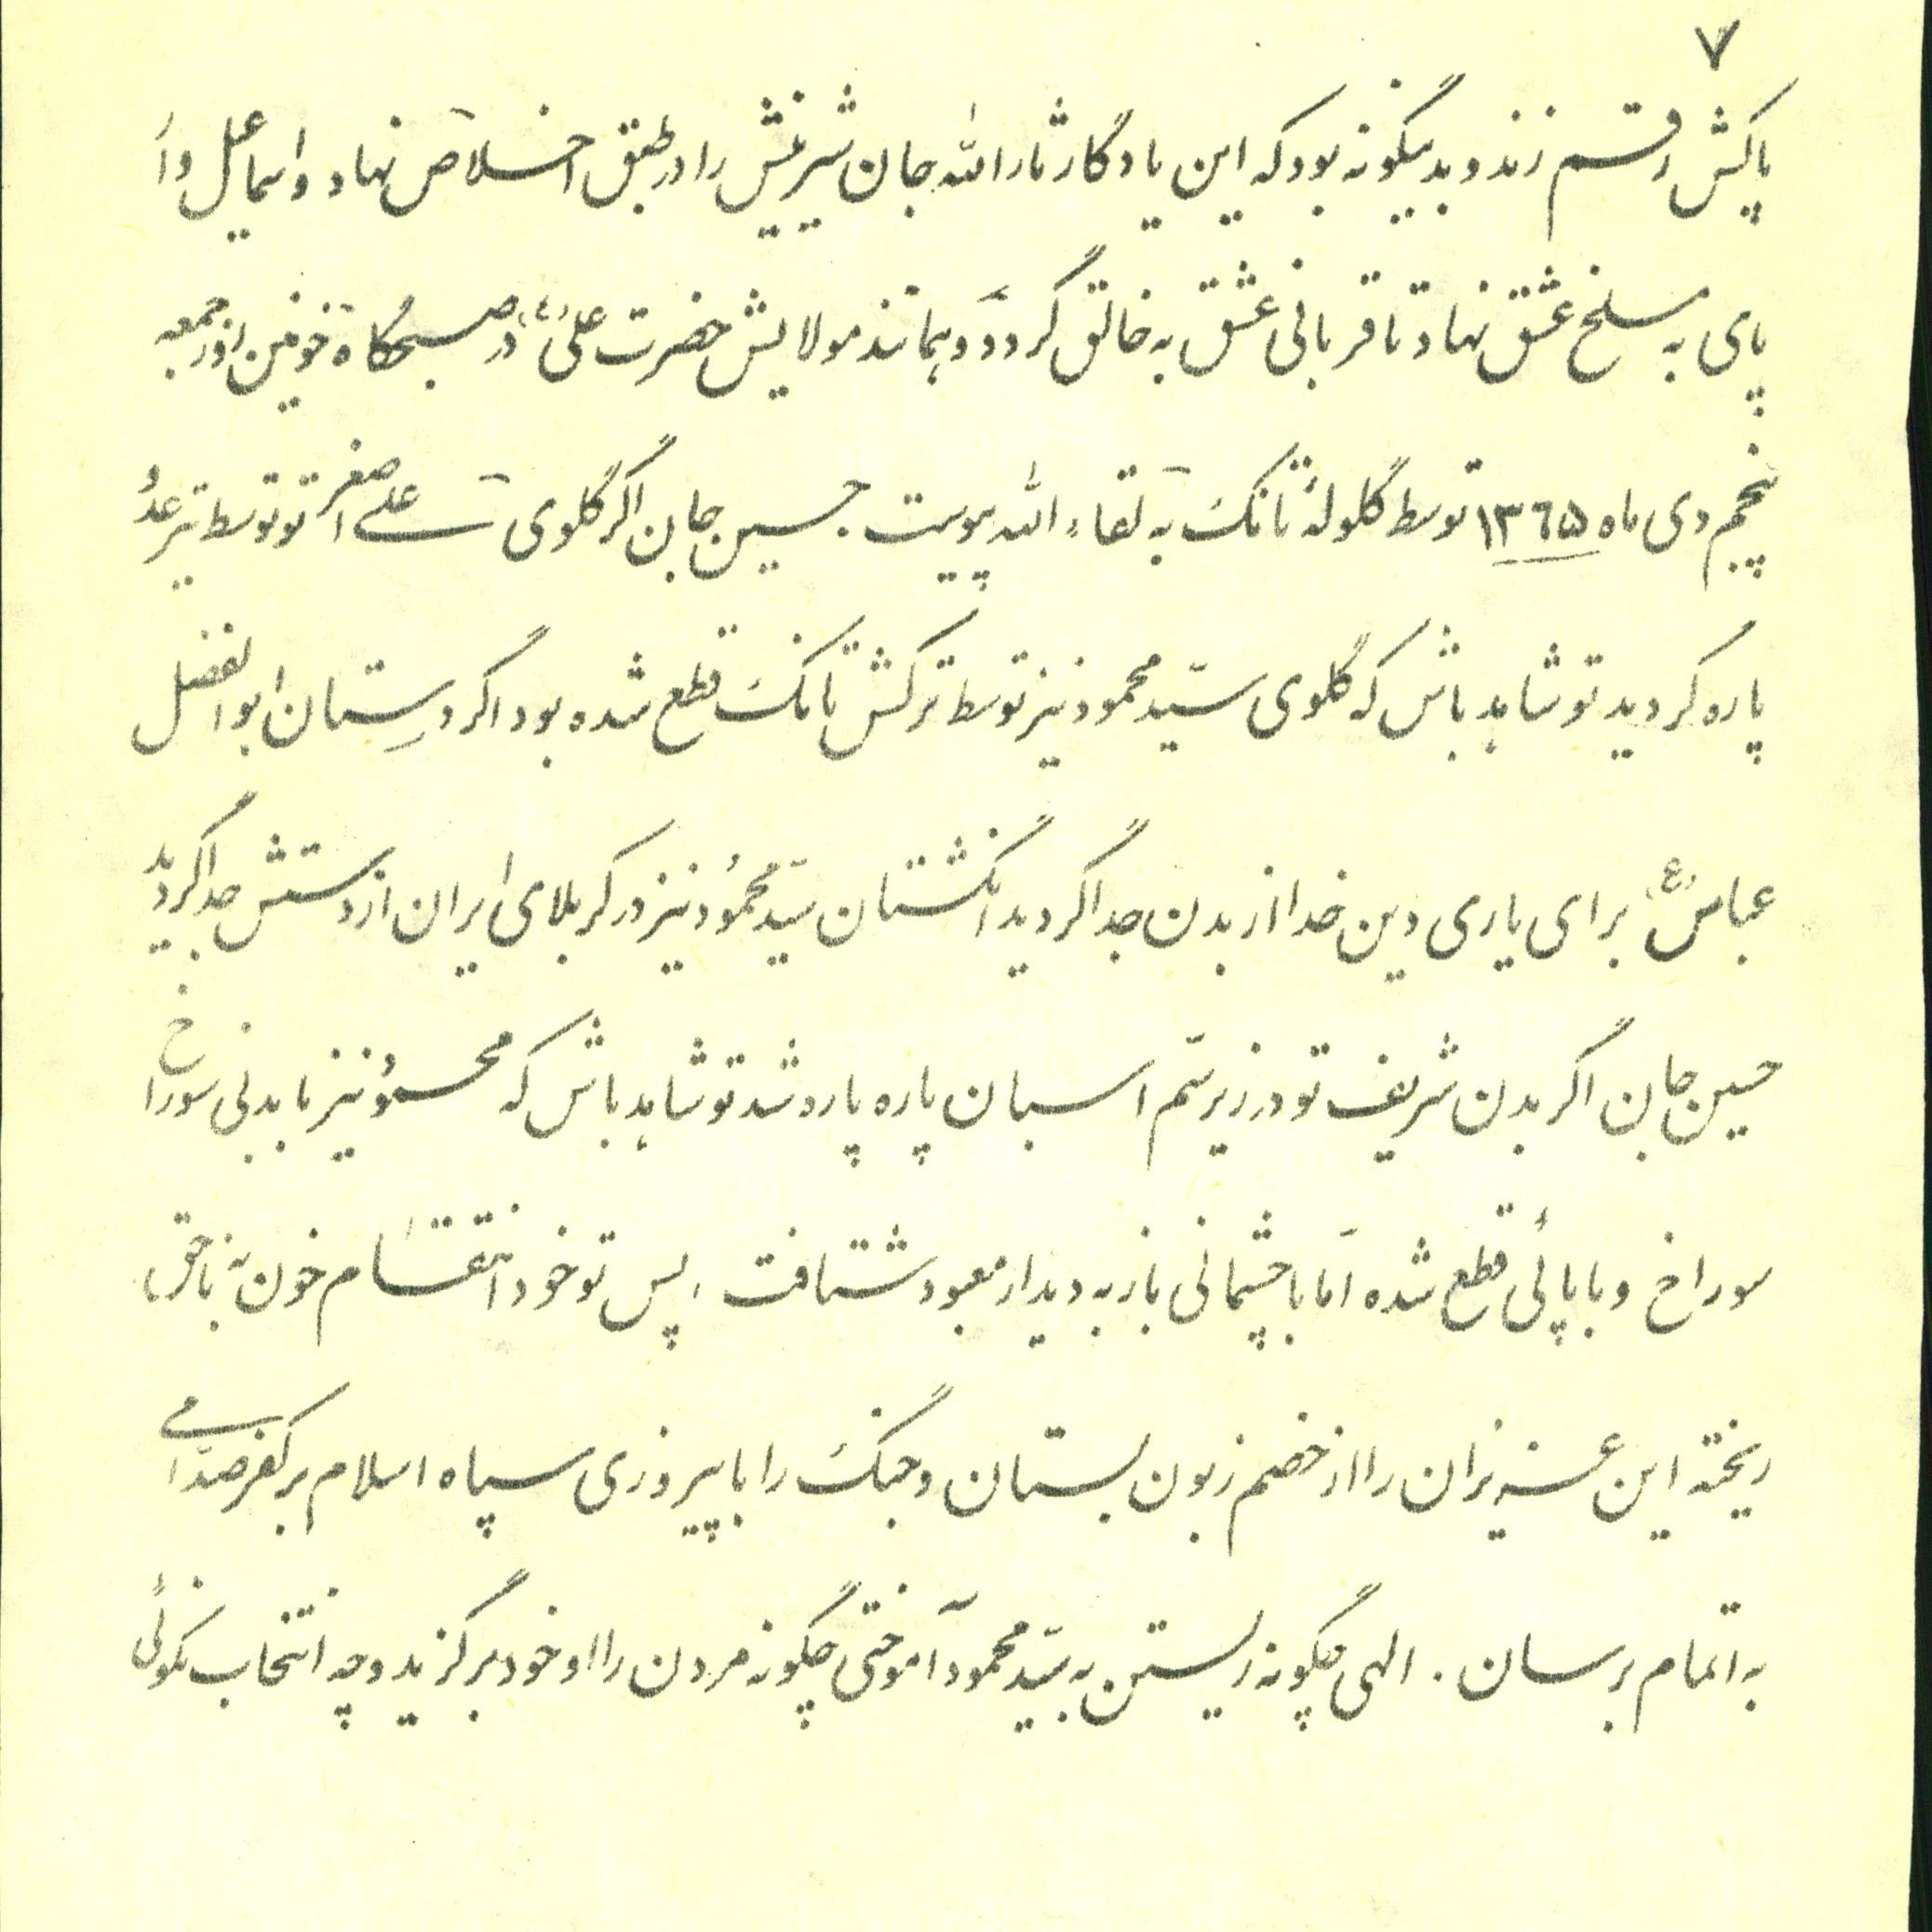 ۷
پاکش رقم زند و بدینگونه بود که این یادگار ثارالله جان شیرینش را در طبق اخلاص نهاد و اسماعیل وار
پای به مسلخ عشق نهاد تا قربانی عشق به خالق گردد و همانند مولایش حضرت علی (ع) در صبحگاه خونین روز جمعه
پنجم دی ماه ۱۳۶۵ توسط گلولهٔ تانک به لقاء الله پیوست حسین جان اگر گلوی علی اصغر تو توسط تیر عدو
پاره گردید تو شاهد باش که گلوی سیّد محمود نیز توسط ترکش تانک قطع شده بود اگر دستان ابوالفضل
عباس (ع) برای یاری دین خدا از بدن جدا گردید انگشتان سیّد محمود نیز در کربلای ایران از دستش جدا گردید
حسین جان اگر بدن شریف تو در زیر سّم اسبان پاره پاره شد تو شاهد باش که محمود نیز با بدنی سوراخ
سوراخ و با پائی قطع شده امّا با چشمانی باز به دیدار معبود شتافت . پس تو خود انتقام خون به ناحق
ریختهٔ این عزیزان را از خصم زبون بستان و جنگ را با پیروزی سپاه اسلام بر کفر صدّامی
به اتمام برسان . الهی چگونه زیستن به سیّد محمود آموختی چگونه مردن را او خود برگزید و چه انتخاب نکوئی